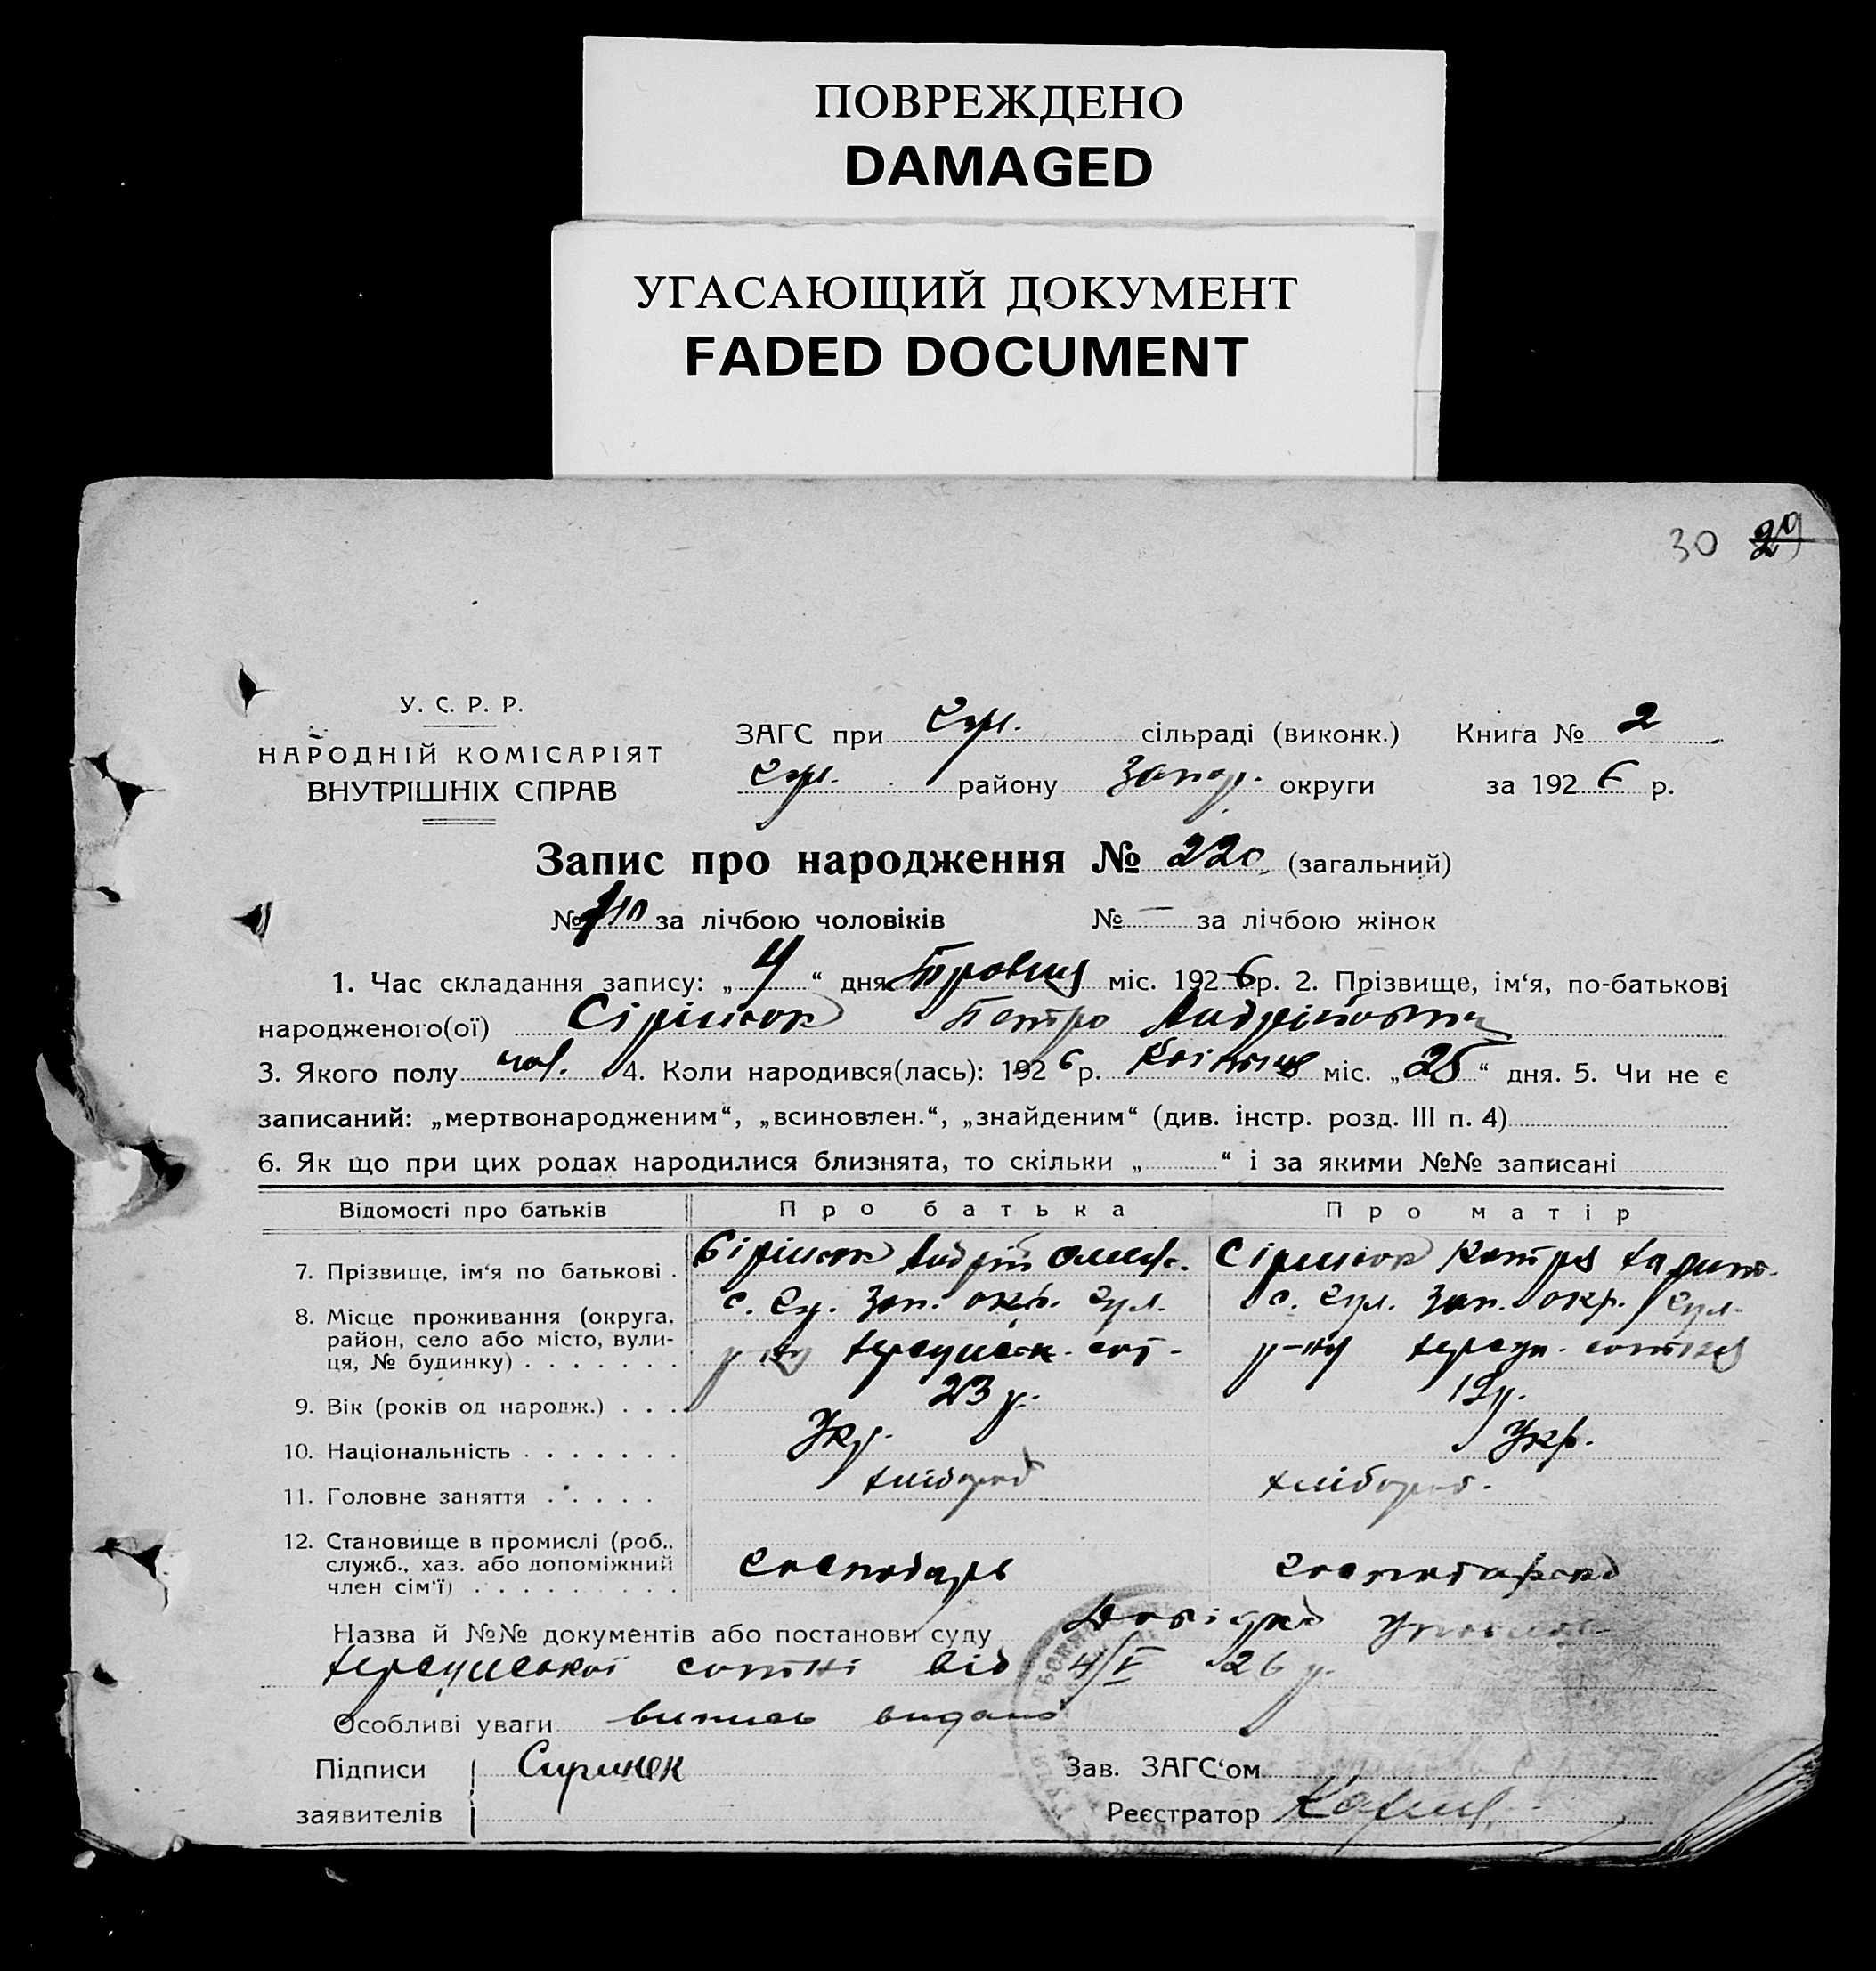 ПОВРЕЖДЕНО
DAMAGED
УГАСАЮЩИЙ ДОКУМЕНТ
FADED DOCUMENT
30 29
У. С. Р. Р.
НАРОДНІЙ КОМІСАРІЯТ
ВНУТРІШНІХ СПРАВ
ЗАГС при Гул. сільраді (виконк.) Книга № 2
Гул. району Запор. округи за 1926 р.
Запис про народження № 220 (загальний)
№ 110 за лічбою чоловіків № — за лічбою жінок
1. Час складання запису: „4“ дня Травня міс. 1926 р. 2. Прізвище, ім‘я, по-батькові
народженого(ої) Петро Андрійович
3. Якого полу чол. 4. Коли народився(лась): 1926 р. Квітня міс. „25“ дня. 5. Чи не є
записаний: „мертвонародженим“, „всиновлен.“, „знайденим“ (див. інстр. розд. III п. 4)
6. Як що при цих родах народилися близнята, то скільки „ “ і за якими №№ записані
Відомості про батьків Про батька Про матір
7. Прізвище, ім‘я по батькові . Андрій Катря
8. Місце проживання (округа, с. Гул. Зап. окр. Гул. с. Гул. Зап. окр. Гул.
район, село або місто, вули-
ця, № будинку) . . . . . . . р-ну сот. р-ну сотня
9. Вік (років од народж.) . . . 23 р. 19 р.
10. Національність . . . . . . . Укр. Укр.
11. Головне заняття . . . . . хлібороб хлібороб.
12. Становище в промислі (роб.,
служб., хаз. або допоміжний господарь
член сім‘ї) . . . . . . . . .
Назва й №№ документів або постанови суду Довідка
сотні від 4/V 26 р.
Особливі уваги випись видано
Підписи Зав. ЗАГС‘ом
заявителів Реєстратор